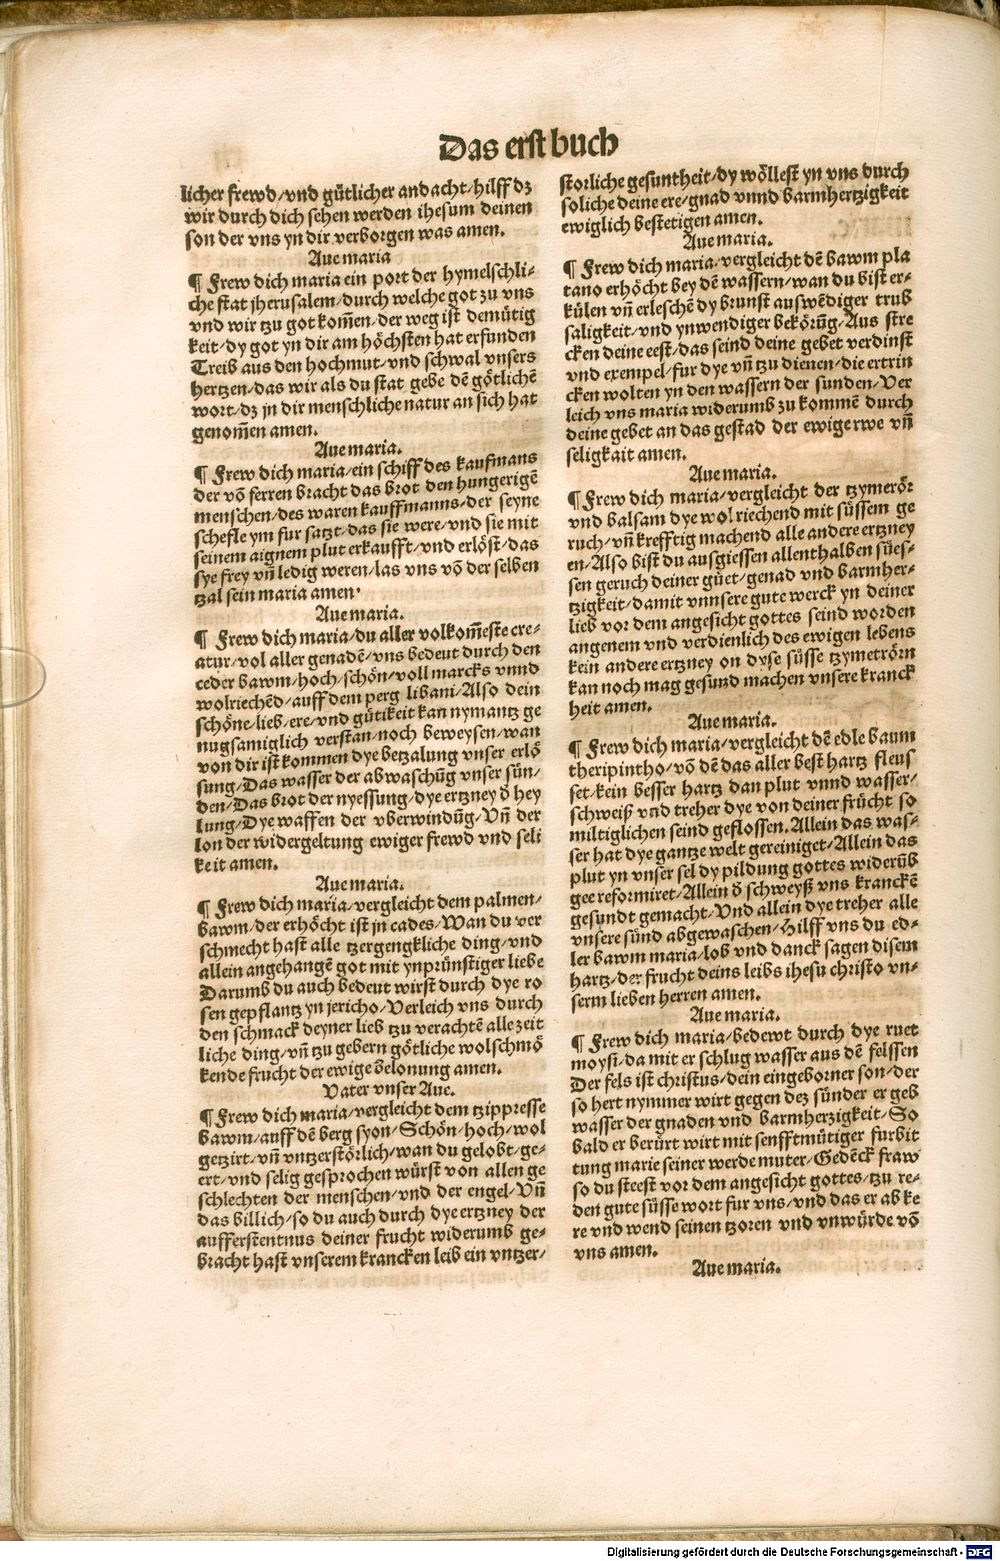 Das erst buch
licher frewd/vnd gütlicher andacht/hilff dz
wir durch dich sehen werden ihesum deinen
son der vns yn dir verborgen was amen.
Aue maria
¶ Frew dich maria ein port der hymelschli-
che stat jherusalem/durch welche got zu vns
vnd wir tzu got kom̄en/der weg ist demütig
keit/dy got yn dir am höchsten hat erfunden
Treib aus den hochmut/vnd schwal vnsers
hertzen/das wir als du stat gebē dē götlichē
wort/dz jn dir menschliche natur an sich hat
genom̄en amen.
Aue maria.
¶ Frew dich maria/ein schiff des kaufmans
der vō ferren bracht das brot den hungerigē
menschen/des waren kauffmanns/der seyne
schefle ym fur satzt/das sie were/vnd sie mit
seinem aignem plut erkaufft/vnd erlöst/das
sye frey vn̄ ledig weren/las vns vō der selben
tzal sein maria amen.
Aue maria.
¶ Frew dich maria/du aller volkom̄este cre-
atur/vol aller genadē/vns bedeut durch den
ceder bawm/hoch/schön/voll marcks vnnd
wolriechēd/auff dem perg libani/Also dein
schöne/lieb/ere/vnd gütikeit kan nymantz ge
nugsamiglich verstan/noch beweysen/wan
von dir ist kommen dye betzalung vnser erlö
sung/Das wasser der abwaschūg vnser sün/
den/Das brot der nyessung/dye ertzney d̄ hey
lung/Dye waffen der vberwindūg/Vn̄ der
lon der widergeltung ewiger frewd vnd seli
keit amen.
Aue maria.
¶ Frew dich maria/vergleicht dem palmen/
bawm/der erhöcht ist jn cades/Wan du ver
schmecht hast alle tzergengkliche ding/vnd
allein angehangē got mit ynprünstiger liebe
Darumb du auch bedeut wirst durch dye ro
sen gepflantz yn jericho/Verleich vns durch
den schmack deyner lieb tzu verachtē alle zeit
liche ding/vn̄ tzu gebern götliche wolschmö
kende frucht der ewigē belonung amen.
Vater vnser Aue.
¶ Frew dich maria/vergleicht dem tzippresse
bawm/auff dē berg syon/Schön/hoch/wol
getzirt/vn̄ vntzerstörlich/wan du gelobt/ge-
ert/vnd selig gesprochen würst von allen ge
schlechten der menschen/vnd der engel/Vn̄
das billich/so du auch durch dye ertzney der
aufferstentnus deiner frucht widerumb ge-
bracht hast vnserem krancken leib ein vntzer/
storliche gesuntheit/dy wöllest yn vns durch
soliche deine ere/gnad vnnd barmhertzigkeit
ewiglich bestetigen amen.
Aue maria.
¶ Frew dich maria/vergleicht dē bawm pla
tano erhöcht bey dē wassern/wan du bist er-
külen vn̄ erleschē dy brunst auswēdiger trub
saligkeit/vnd ynwendiger bekörūg/Aus stre
cken deine eest/das seind deine gebet verdinst
vnd exempel/fur dye vn̄ tzu dienen/die ertrin
cken wolten yn den wassern der sunden/Ver
leich vns maria widerumb zu kommē durch
deine gebet an das gestad der ewigē rwe vn̄
seligkait amen.
Aue maria.
¶ Frew dich maria/vergleicht der tzymerör
vnd balsam dye wol riechend mit süssem ge
ruch/vn̄ krefftig machend alle andere ertzney
en/Also bist du ausgiessen allenthalben sües-
sen geruch deiner güet/genad vnd barmher-
tzigkeit/damit vnnsere gute werck yn deiner
lieb vor dem angesicht gottes seind worden
angenem vnd verdienlich des ewigen lebens
kein andere ertzney on dyse süsse tzymetrörn
kan noch mag gesund machen vnsere kranck
heit amen.
Aue maria.
¶ Frew dich maria/vergleicht dē edlē baum
theripintho/vō dē das aller best hartz fleus
set/kein besser hartz dan plut vnnd wasser/
schweiß vnd treher dye von deiner frücht so
miltiglichen seind geflossen. Allein das was-
ser hat dye gantze welt gereiniget/Allein das
plut yn vnser sel dy pildung gottes widerūb
gee reformiret/Allein d̄ schweyß vns kranckē
gesundt gemacht/Vnd allein dye treher alle
vnsere sünd abgewaschen/Hilff vns du ed-
ler bawm maria/lob vnd danck sagen disem
hartz/der frucht deins leibs ihesu christo vn-
serm lieben herren amen.
Aue maria.
¶ Frew dich maria/bedewt durch dye ruet
moysi/da mit er schlug wasser aus dē felssen
Der fels ist christus/dein eingeborner son/der
so hert nymmer wirt gegen dez sünder er geb
wasser der gnaden vnd barmherzigkeit/So
bald er berürt wirt mit senfftmütiger furbit
tung marie seiner werdē muter/Gedēck fraw
so du steest vor dem angesicht gottes/tzu re-
den gute süsse wort fur vns/vnd das er ab ke
re vnd wend seinen tzoren vnd vnwürde vō
vns amen.
Aue maria.
Digitalisierung gefördert durch die Deutsche Forschungsgemeinschaft - DFG